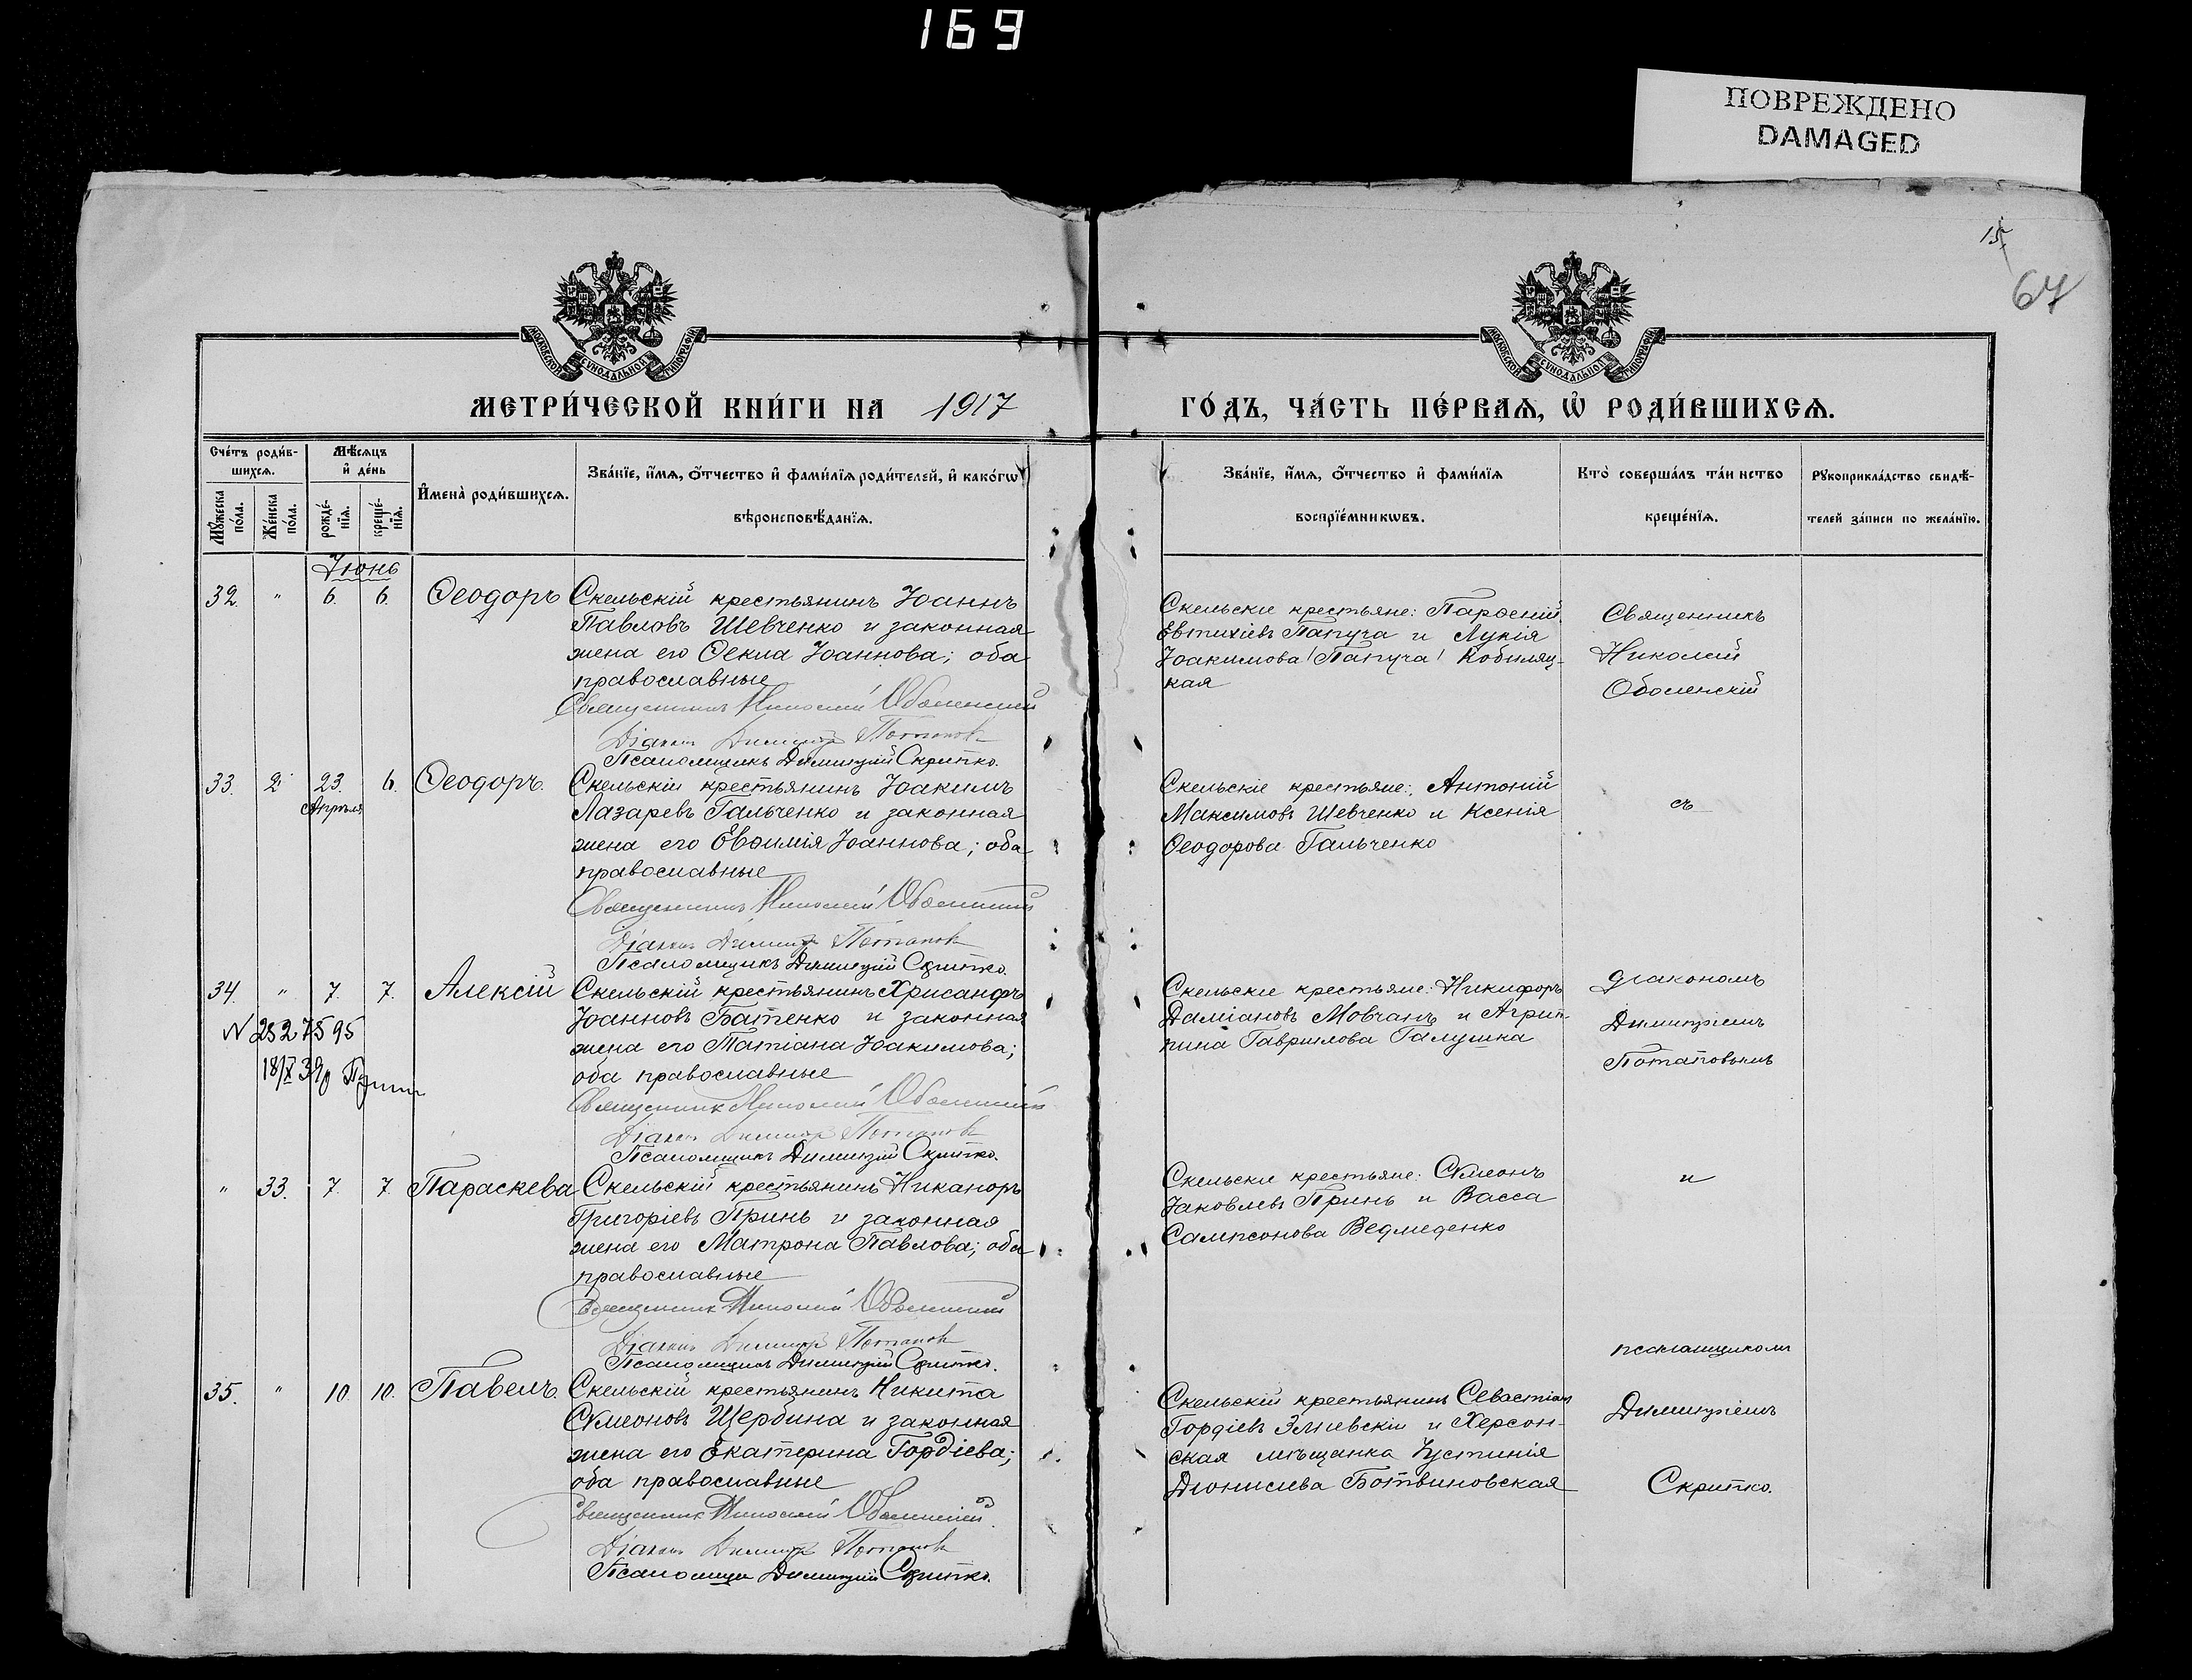 169
ПОВРЕЖДЕНО
DAMAGED
15
67
МОСКОВСКОЙ СѴНОДАЛЬНОЙ ТИПОГРАФІИ
МОСКОВСКОЙ СѴНОДАЛЬНОЙ ТИПОГРАФІИ
МЕТРИ́ЧЕСКОЙ КНИ́ГИ НА 1917
ГО́ДЪ, ЧА́СТЬ ПЕ́РВАѦ, Ѽ РОДИ́ВШИХСѦ.
Сче́тъ роди́в-
шихсѧ.
Мꙋ́жеска по́ла.
Же́нска по́ла.
Мѣ́сѧцъ
и҆ де́нь
рожде́-
нїѧ.
креще́-
нїѧ.
И҆мена̀ роди́вшихсѧ.
Зва́нїе, и҆́мѧ, ѻ҆́тчество и҆ фами́лїѧ роди́телей, и҆ како́гѡ
вѣроисповѣ́данїѧ.
Зва́нїе, и҆́мѧ, ѻ҆́тчество и҆ фами́лїѧ
воспрїе́мникѡвъ.
Кто̀ соверша́лъ та́инство
креще́нїѧ.
Рꙋкоприкла́дство свидѣ́-
телей за́писи по жела́нїю.
Іюнь
32. " 6. 6. Ѳеодоръ
Скельскій крестьянинъ Іоаннъ
Павловъ Шевченко и законная
жена его Ѳекла Іоаннова; оба
православные
Священникъ Николай Оболенскій
Діаконъ Димитрій Потаповъ
Псаломщикъ Димитрій Скрипко.
Скельскіе крестьяне: Парѳеній
Евтихіевъ Папуча и Лукія
Іоакимова (Папуча) Кобиляц-
кая
Священникъ
Николай
Оболенскій
33. 2 23. 6. Ѳеодоръ.
Апрѣля
Скельскій крестьянинъ Іоакимъ
Лазаревъ Гальченко и законная
жена его Евѳимія Іоаннова; оба
православные
Священникъ Николай Оболенскій
Діаконъ Димитрій Потаповъ
Псаломщикъ Димитрій Скрипко.
Скельскіе крестьяне: Антоній
Максимовъ Шевченко и Ксенія
Ѳеодорова Гальченко
съ
34. " 7. 7. Алексій
N 2327595
Скельскій крестьянинъ Хрисанфъ
Іоанновъ Батенко и законная
жена его Татіана Іоакимова;
оба православные
Священникъ Николай Оболенскій
Діаконъ Димитрій Потаповъ
Псаломщикъ Димитрій Скрипко.
Скельскіе крестьяне: Никифоръ
Даміановъ Мовчанъ и Агрип-
пина Гавріилова Галушка
діакономъ
Димитріемъ
Потаповымъ
" 33. 7. 7. Параскева
Скельскій крестьянинъ Никаноръ
Григоріевъ Принь и законная
жена его Матрона Павлова; оба
православные
Священникъ Николай Оболенскій
Діаконъ Димитрій Потаповъ
Псаломщикъ Димитрій Скрипко.
Скельскіе крестьяне: Сѵмеонъ
Іаковлевъ Принь и Васса
Сампсонова Ведмеденко
и
35. " 10. 10. Павелъ.
Скельскій крестьянинъ Никита
Сѵмеоновъ Щербина и законная
жена его Екатерина Гордіева;
оба православные
Священникъ Николай Оболенскій
Діаконъ Димитрій Потаповъ
Псаломщикъ Димитрій Скрипко.
Скельскій крестьянинъ Севастіанъ
Гордіевъ Змievскій и Херсон-
ская мѣщанка Іустинія
Діонисіева Ботвиновская
псаломщикомъ
Димитріемъ
Скрипко.